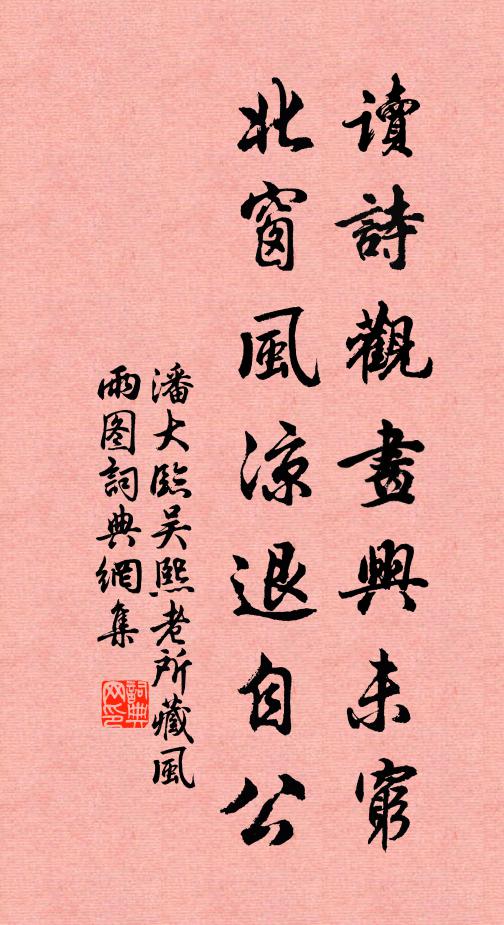 讀詩觀畫興未窮
北窗風涼退自公
潘大臨吴熙老所藏風
雨图詞典網集
詞典網印